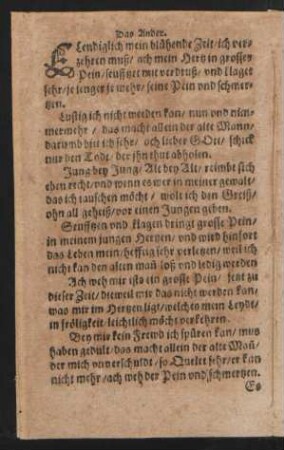 Das Ander.
ELendiglich mein blühende Zeit/ ich ver-
zehren muß/ ach mein Hertz in grosser
Pein/ seufftzet mit verdruß/ vnd klaget
sehr/ je lenger je mehr/ seine Pein vnd schmer-
tzen.
Lustig ich nicht werden kan/ nun vnd nim-
mermehr/ das macht allein der alte Mann/
darumb bit ich sehr/ ach lieber GOtt/ schick
mir den Todt/ der jhn thut abholen.
Jung bey Jung/ Alt bey Alt/ reimbt sich
eben recht/ vnd wenn es wer in meiner gewalt/
das ich tauschen möcht/ wolt ich den Greiß/
ohn all geheiß/ vor einen Jungen geben.
Seufftzen vnd klagen bringt grosse Pein/
in meinem jungen Hertzen/ vnd wird hinfort
das Leben mein/ hefftig sehr verletzen/ weil ich
nicht kan den alten man loß vnd ledig werden
Ach weh mir ists ein grosse Pein/ jtzt zu
dieser Zeit/ dieweil mir das nicht werden kan/
was mir im Hertzen ligt/ welches mein Leydt/
in fröligkeit/ leichtlich möcht verkehren.
Bey mir kein Frewd ich spüren kan/ mus
haben gedult/ das macht allein der alte Mañ/
der mich verwerschuldt/ so Quelet sehr/ er kan
nicht mehr/ ach weh der Pein vnd schmertzen.
Es